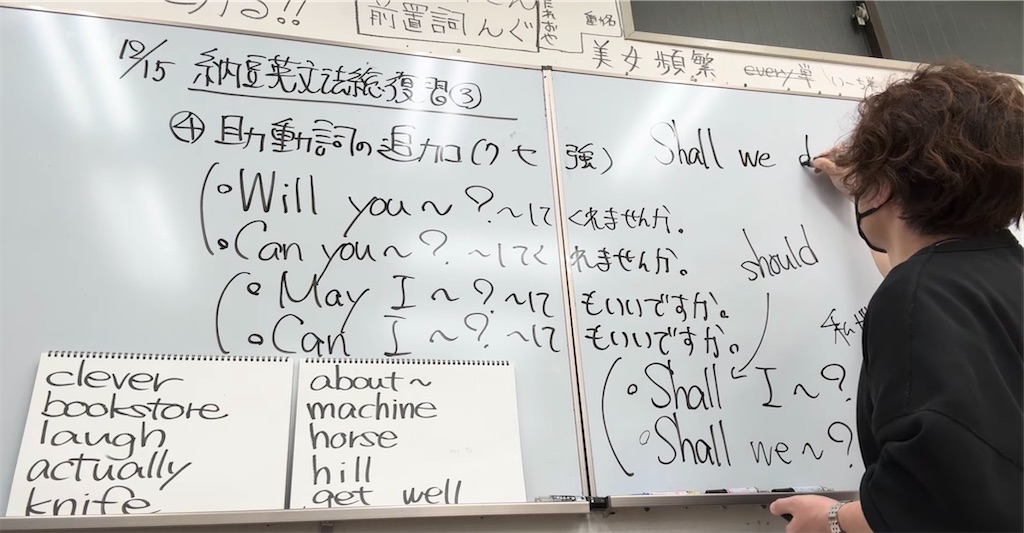 前置詞 んぐ
美女 頻繁 every 単
12/15 納豆英文法総復習③
④ 助動詞の追加(クセ強)
Will you～? ～してくれませんか。
Can you～? ～してくれませんか。
May I～? ～してもいいですか。
Can I～? ～してもいいですか。
Shall we d
should
Shall I～?
Shall we～?
clever
bookstore
laugh
actually
knife
about～
machine
horse
hill
get well